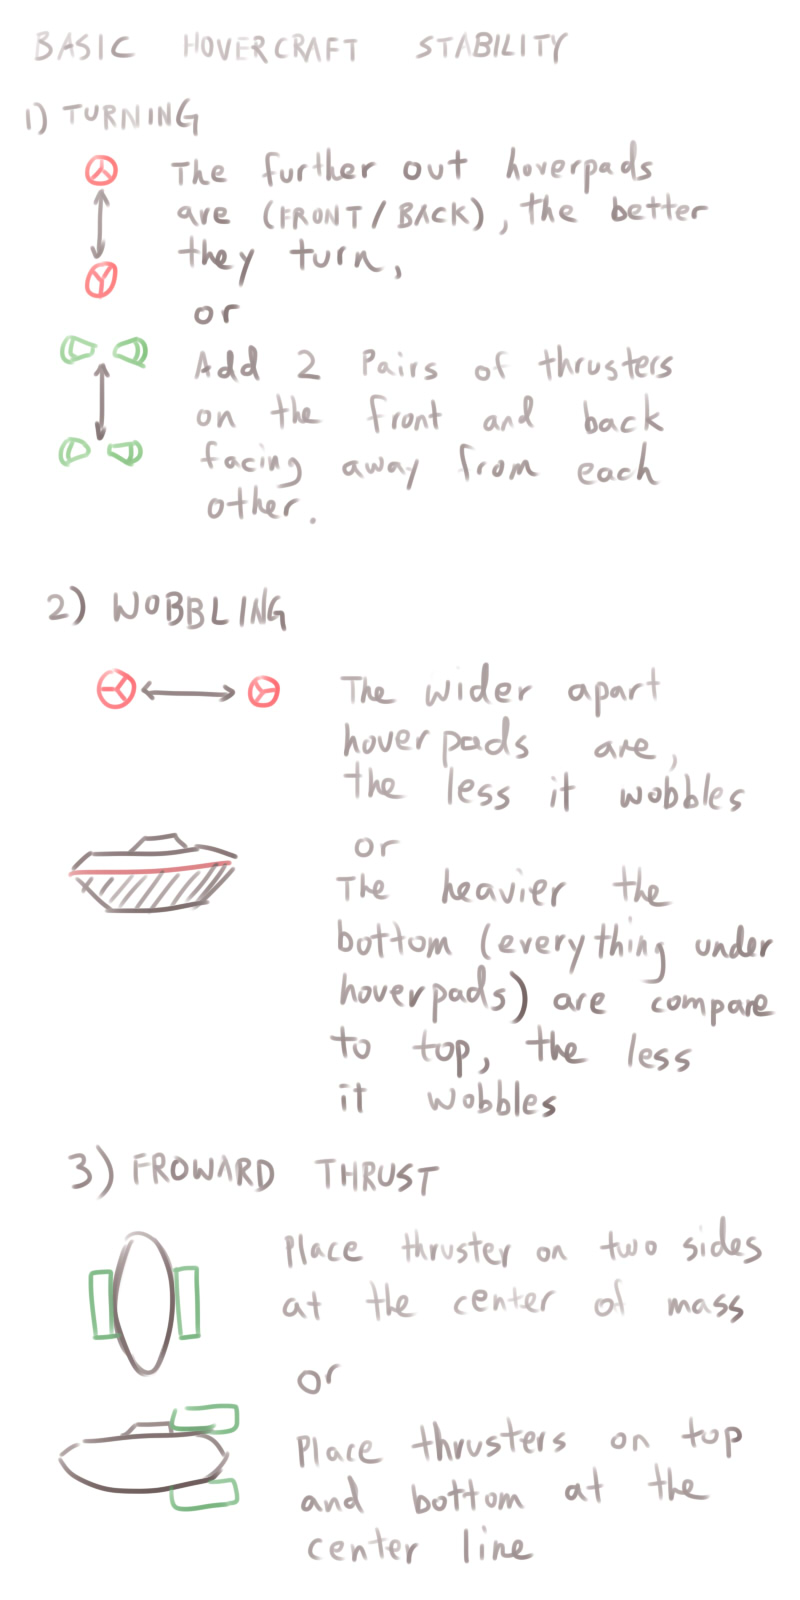 BASIC HOVERCRAFT STABILITY
1) TURNING
The further out hoverpads
are (FRONT/BACK), the better
they turn,
or
Add 2 Pairs of thrusters
on the front and back
facing away from each
other.
2) WOBBLING
The wider apart
hoverpads are,
the less it wobbles
or
The heavier the
bottom (everything under
hoverpads) are compare
to top, the less
it wobbles
3) FROWARD THRUST
Place thruster on two sides
at the center of mass
or
Place thrusters on top
and bottom at the
center line